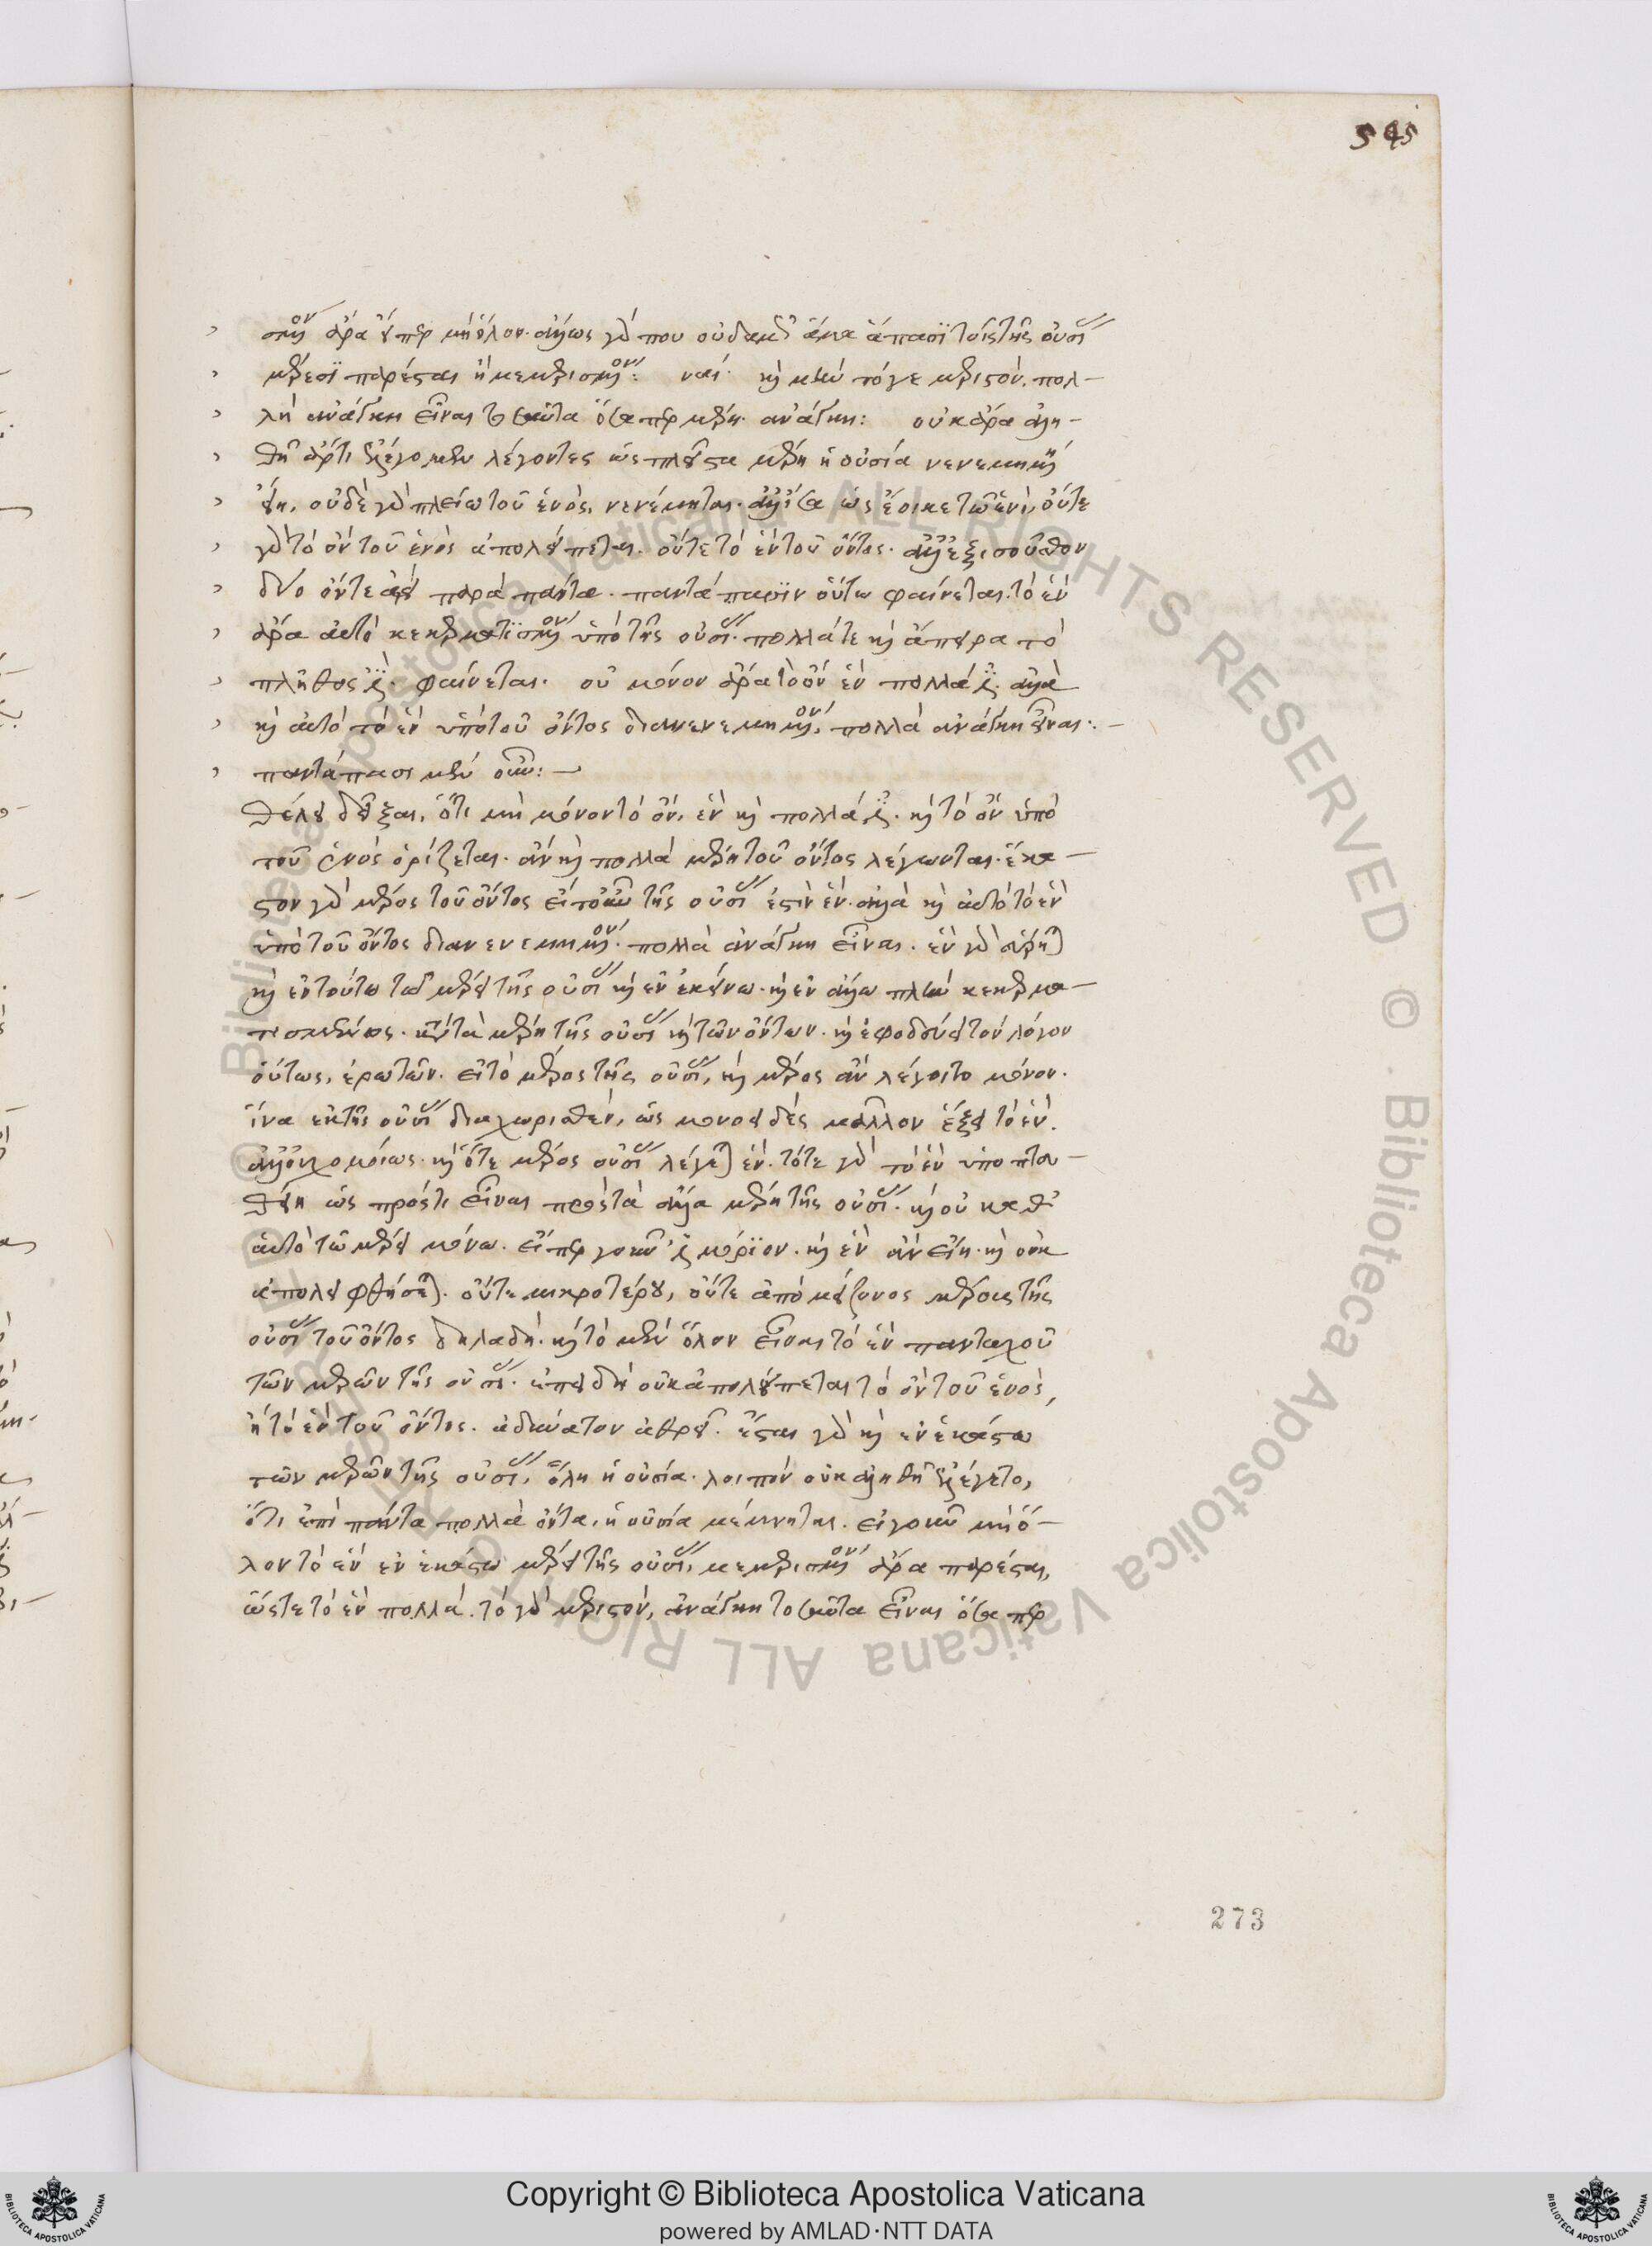 545
σμένον ἄρα εἴπερ μὴ ὅλον. ἄλλως γάρ που οὐδαμῶς ἅμα ἅπασι τοῖς τῆς οὐσίας
μέρεσι παρέσται ἢ μεμερισμένον: ναί. καὶ μὴν τό γε μεριστὸν, πολ-
λὴ ἀνάγκη εἶναι τοσαῦτα ὅσα περ μέρη. ἀνάγκη: οὐκ ἄρα ἀλη-
θῆ ἄρτι ἐλέγομεν λέγοντες ὡς πλεῖστα μέρη ἡ οὐσία νενεμημένη
εἴη, οὐδὲ γὰρ πλείω τοῦ ἑνὸς, νενέμηται. ἀλλ' ἴσα ὡς ἔοικε τῶ ἑνὶ, οὔτε
γὰρ τὸ ὂν τοῦ ἑνὸς ἀπολείπεται. οὔτε τὸ ἓν τοῦ ὄντος. ἀλλ' ἐξισοῦσθον
δύο ὄντε ἀεὶ παρὰ πάντα. παντάπασιν οὕτω φαίνεται. τὸ ἓν
ἄρα αὐτὸ κεκερματισμένον ὑπὸ τῆς οὐσίας. πολλά τε καὶ ἄπειρα τὸ
πλῆθος ἐστι. φαίνεται. οὐ μόνον ἄρα τὸ ὂν ἓν πολλά ἐστι. ἀλλὰ
καὶ αὐτὸ τὸ ἓν ὑπὸ τοῦ ὄντος διανενεμημένον, πολλὰ ἀνάγκη εἶναι.
παντάπασι μὲν οὖν:
θέλει δεῖξαι, ὅτι μὴ μόνον τὸ ὂν, ἓν καὶ πολλά ἐστι. καὶ τὸ ὂν ὑπὸ
τοῦ ἑνὸς ὁρίζεται. ἂν καὶ πολλὰ μέρη τοῦ ὄντος λέγωνται. ἕκα-
στον γὰρ μέρος τοῦ ὄντος εἴτουν τῆς οὐσίας ἐστὶν ἕν. ἀλλὰ καὶ αὐτὸ τὸ ἓν
ὑπὸ τοῦ ὄντος διανενεμημένον. πολλὰ ἀνάγκη εἶναι. ἓν γὰρ
καὶ ἐν τούτω τῶ μέρει τῆς οὐσίας καὶ ἐν ἐκείνω. καὶ ἐν ἄλλω πλὴν κεκερμα-
τισμένως. κατὰ τὰ μέρη τῆς οὐσίας καὶ τῶν ὄντων. καὶ ἐφοδεύει τὸν λόγον
οὕτως, ἐρωτῶν. εἰ τὸ μέρος τῆς οὐσίας, καὶ μέρος ἂν λέγοιτο μόνον.
ἵνα ἐκ τῆς οὐσίας διαχωρισθὲν, ὡς μονοειδὲς μᾶλλον ἕξει τὸ ἕν.
ἀλλ' οὐχ ὁμοίως. καὶ ὅτε μέρος οὐσίας λέγεται ἕν. τότε γὰρ τὸ ἓν ὑποπτευ-
θείη ὡς πρόστι εἶναι πρὸς τὰ ἄλλα μέρη τῆς οὐσίας. καὶ οὐ καθ'
αὑτὸ τῶ μέρει μόνω. εἴπερ γοῦν ἐστι μόριον. καὶ ἓν ἂν εἴη. καὶ οὐκ
ἀπολειφθήσεται. οὔτε μικροτέρου, οὔτε ἀπὸ μείζονος μέρους τῆς
οὐσίας τοῦ ὄντος δηλαδή. καὶ τὸ μὲν ὅλον εἶναι τὸ ἓν πανταχοῦ
τῶν μερῶν τῆς οὐσίας. ἐπειδὴ οὐκ ἀπολείπεται τὸ ὂν τοῦ ἑνὸς,
ἢ τὸ ἓν τοῦ ὄντος. ἀδύνατον ἄθρει. ἔσται γὰρ καὶ ἐν ἑκάστω
τῶν μερῶν τῆς οὐσίας, ὅλη ἡ οὐσία. λοιπὸν οὐκ ἀληθῆ ἐλέγετο,
ὅτι ἐπὶ πάντα πολλὰ ὄντα, ἡ οὐσία νενέμηται. εἰ γοῦν μὴ ὅ-
λον τὸ ἓν ἐν ἑκάστω μέρει τῆς οὐσίας, μεμερισμένον ἄρα παρέσται,
ὥστε τὸ ἓν πολλά. τὸ γὰρ μεριστὸν, ἀνάγκη τοσαῦτα εἶναι ὅσα περ
273
© Biblioteca Apostolica Vaticana ALL RIGHTS RESERVED © Biblioteca Apostolica Vaticana ALL RIGHTS RESERVED
Copyright © Biblioteca Apostolica Vaticana
powered by AMLAD・NTT DATA
BIBLIOTECA APOSTOLICA VATICANA
BIBLIOTECA APOSTOLICA VATICANA